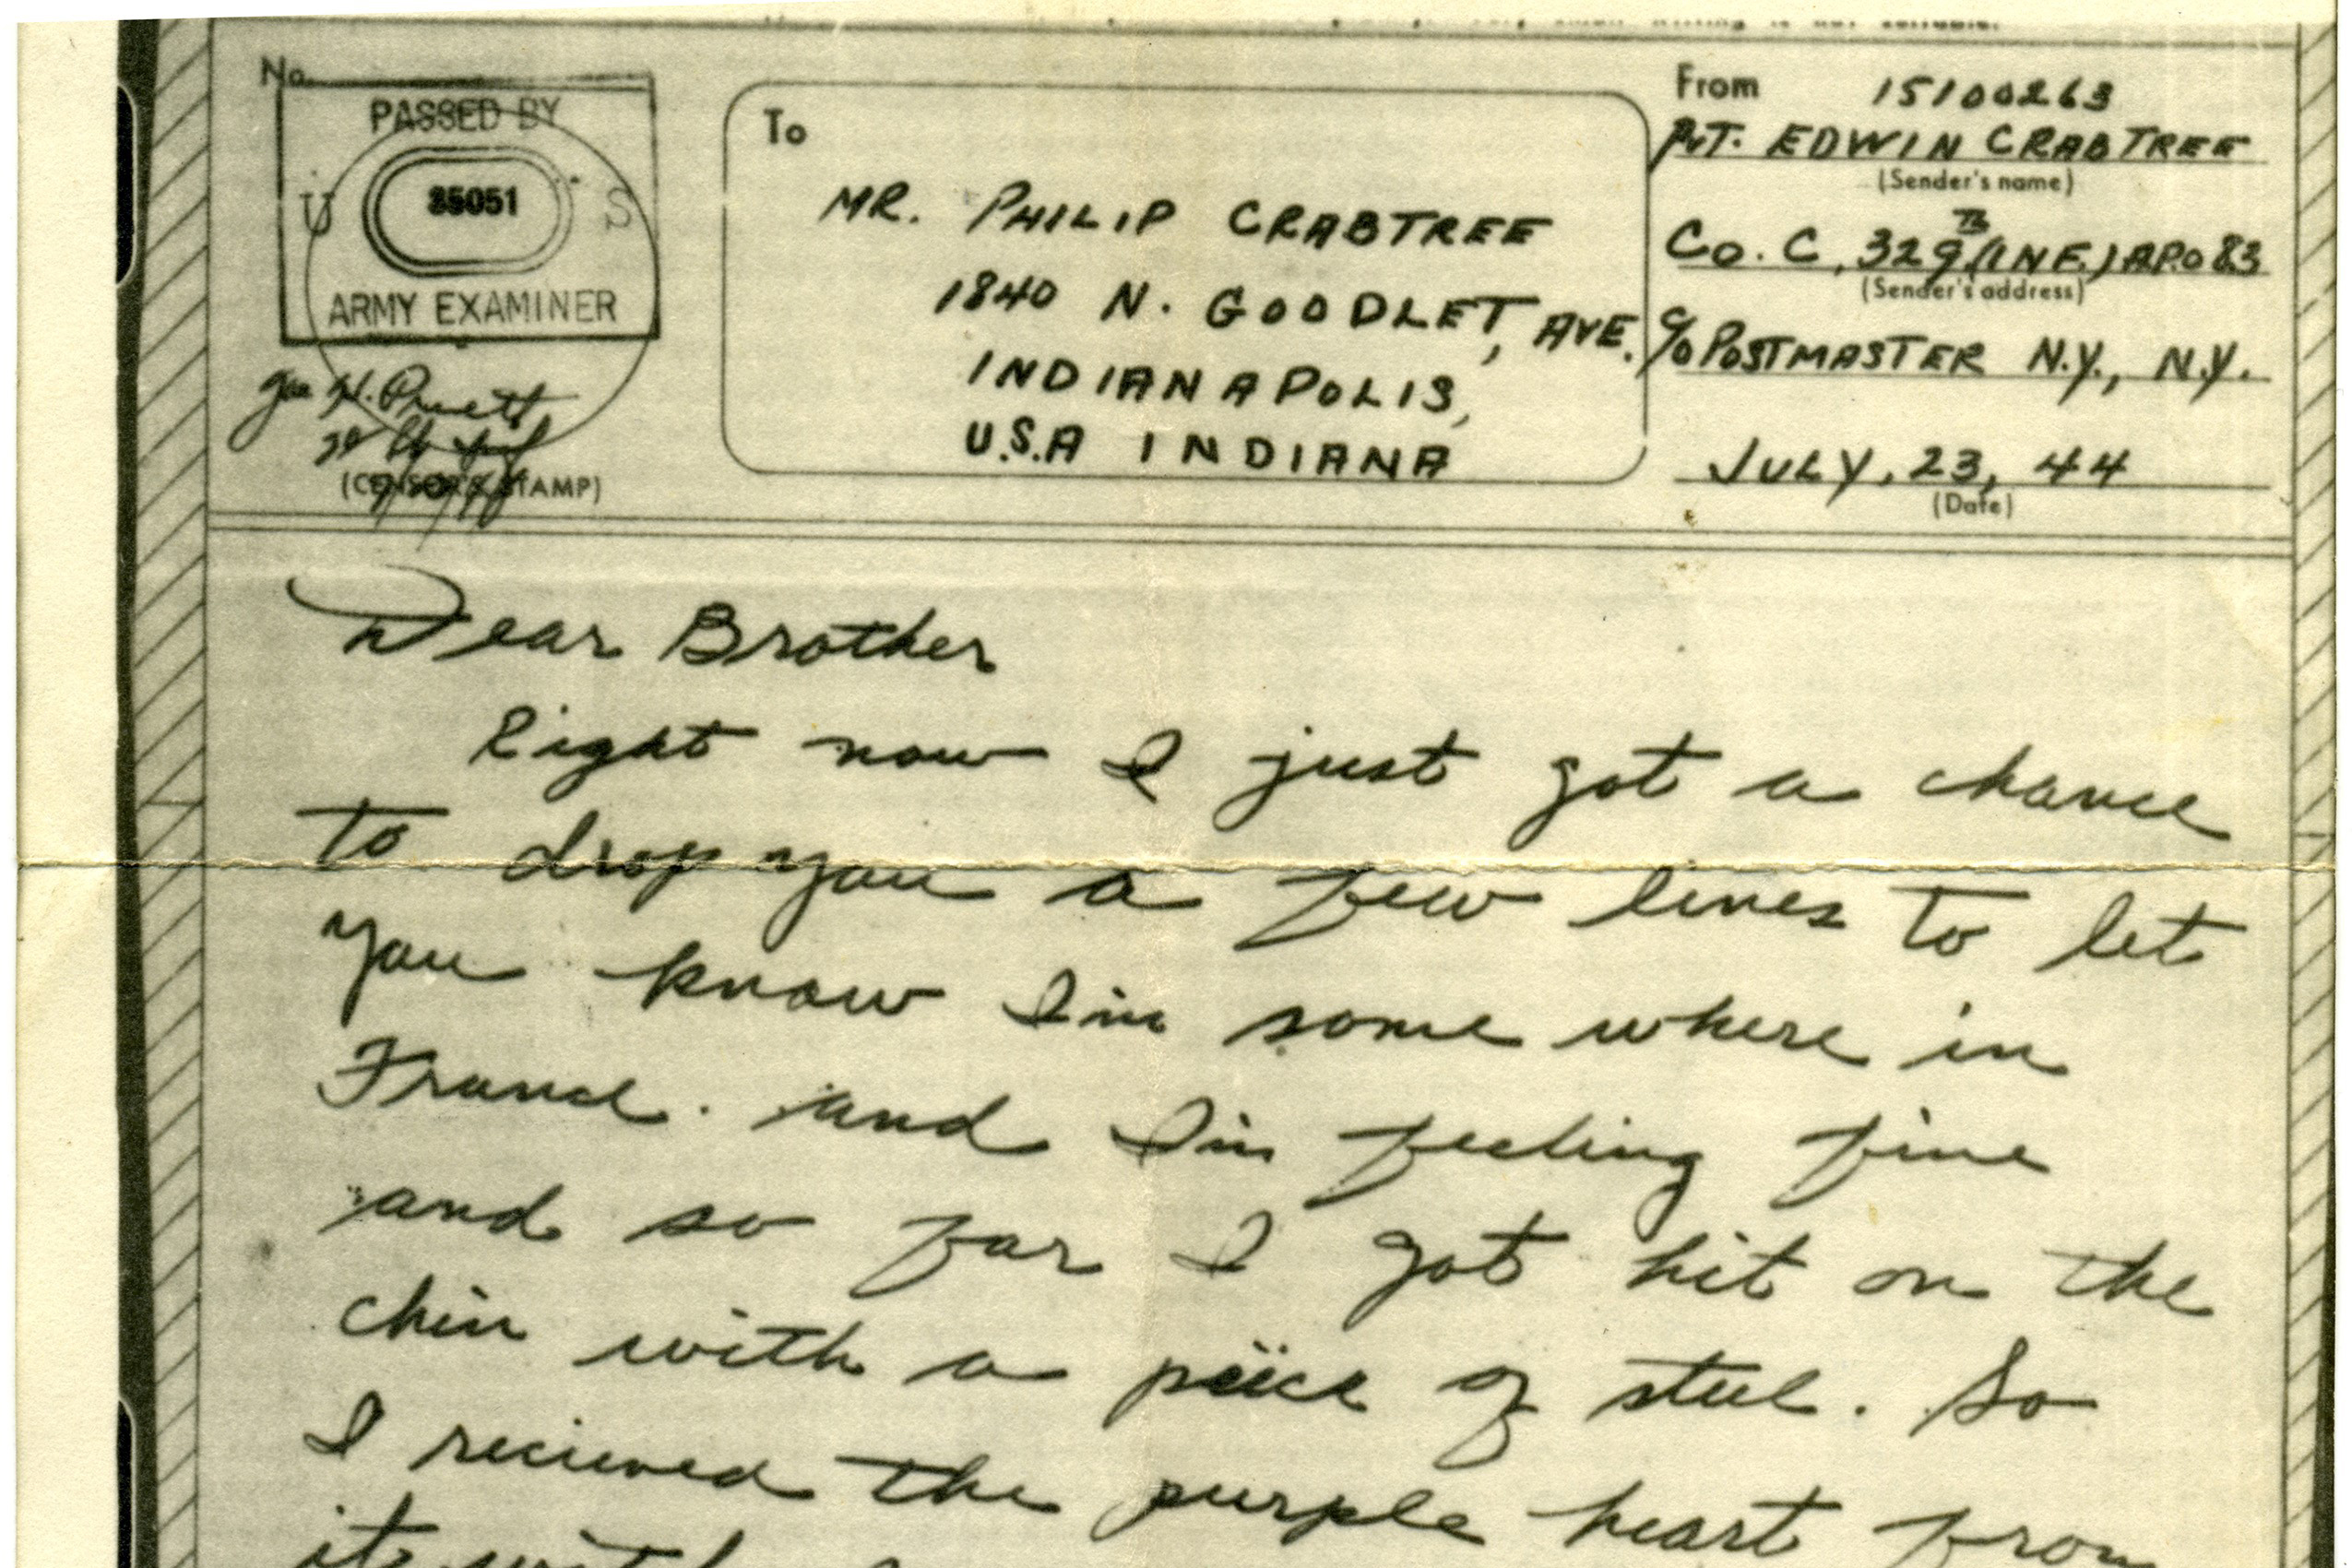 No.
PASSED BY
U 35051 S
ARMY EXAMINER
(CENSOR'S STAMP)
To
MR. PHILIP CRABTREE
1840 N. GOODLET, AVE.
INDIANAPOLIS,
U.S.A INDIANA
From 15100263
PVT. EDWIN CRABTREE
(Sender's name)
Co. C, 329TH (INF.) A.P.O 83
(Sender's address)
c/o POSTMASTER N.Y., N.Y.
JULY, 23, 44
(Date)
Dear Brother
Right now I just got a chance
to drop you a few lines to let
you know I'm some where in
France. and I'm feeling fine
and so far I got hit on the
chin with a peice of steel. So
I recieved the purple heart from